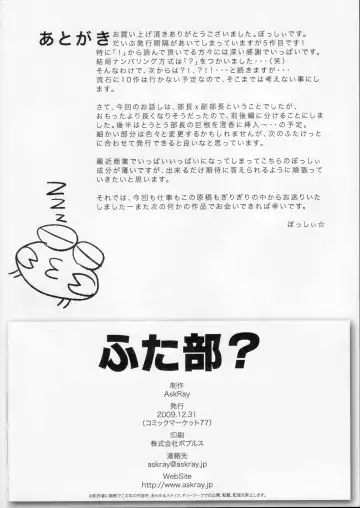 あとがき
お買い上げ頂きありがとうございました。ぽっしぃです。
だいぶ発行間隔があいてしまっていますが5作目です!
特に「!」から読んで頂いてる方々には深い感謝でいっぱいです。
結局ナンバリング方式は「?」をつかいました…(笑)
そんなわけで、次からは?!、?!!・・・と続きますが、
流石に10作は行かない予定なので、そこまでは考えない事にします。
さて、今回のお話しは、部長x副部長ということでしたが、
おもったより長くなりそうだったので、前後編に分けることにしました。後半はとうとう部長の巨根を澄香に挿入〜・・・の予定。
細かい部分は色々と変更するかもしれませんが、次のふたけっとに合わせて発行できると良いなと思っています。
最近商業でいっぱいいっぱいになってしまってこちらのぽっしぃ
成分が薄いですが、出来るだけ期待に答えられるように頑張って
いきたいと思います。
それでは、今回も仕事もこの原稿もぎりぎりの中からお送りいた
しましたーまた次の何かの作品でお会いできれば幸いです。
ぽっしぃ☆
ZZZZ
ふた部?
制作
AskRay
発行
2009.12.31
(コミックマーケット77)
印刷
株式会社ポプルス
連絡先
askray@askray.jp
WebSite
http://www.askray.jp